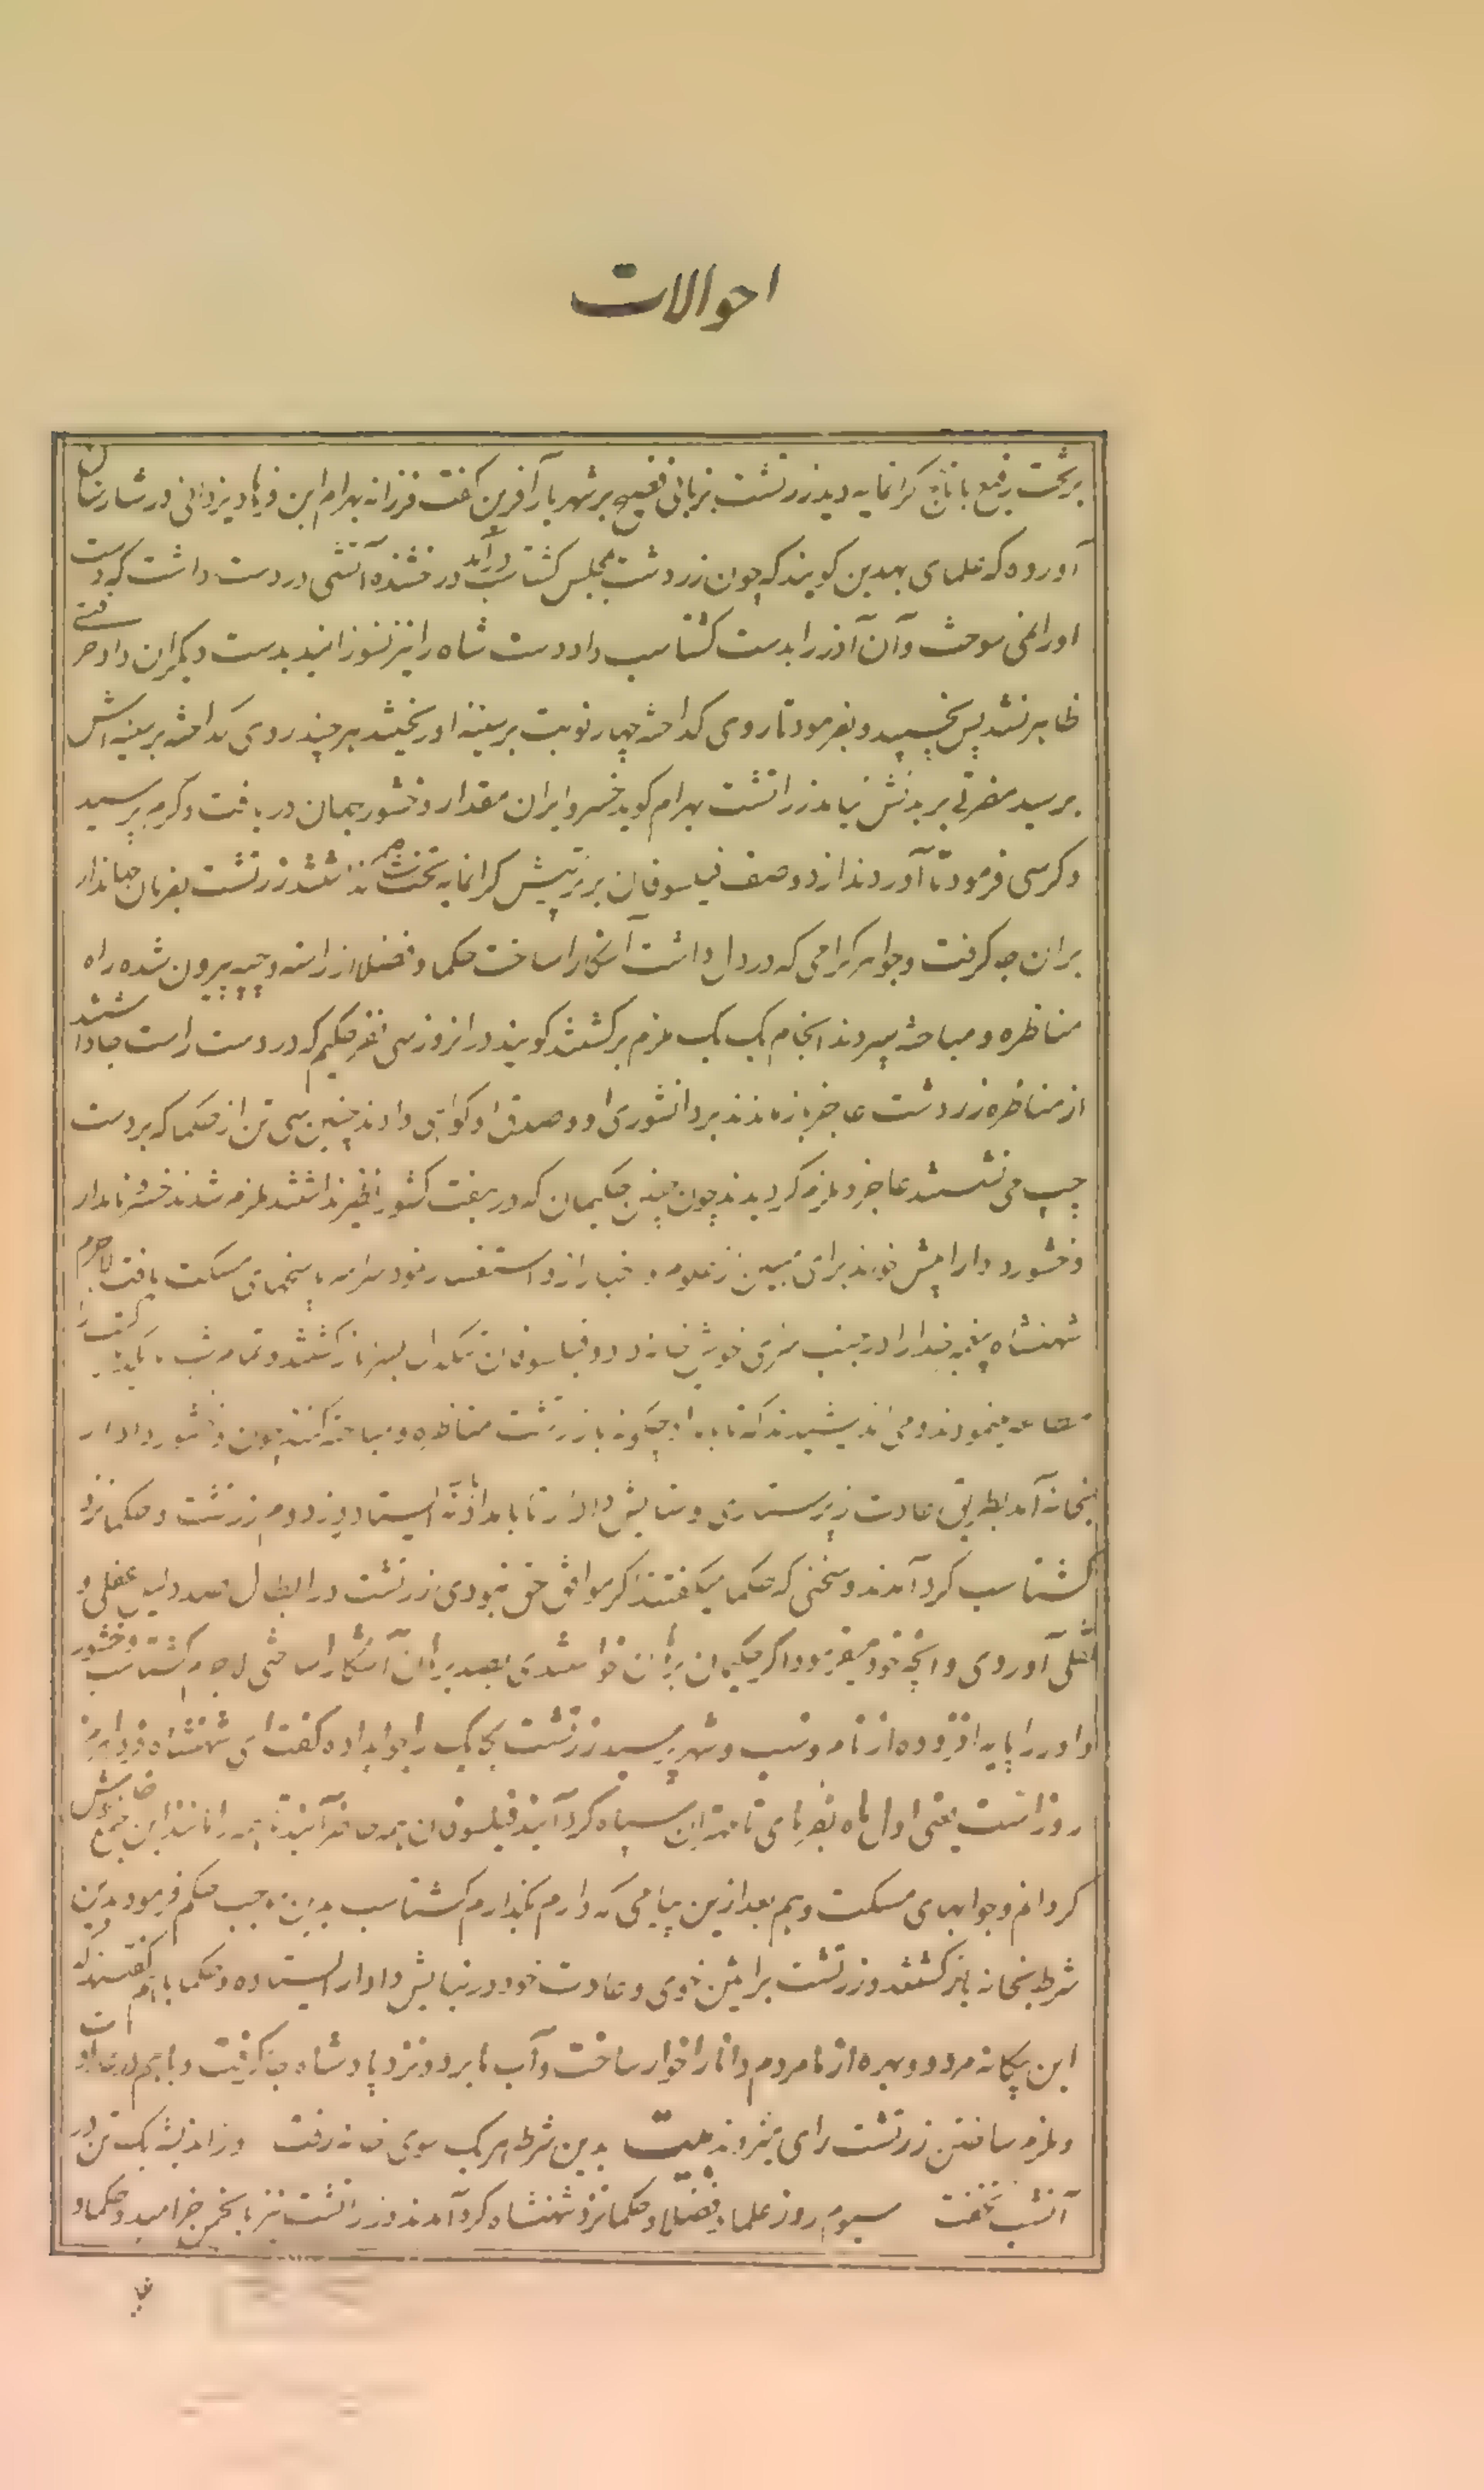 احوالات
برتخت رفیع باتاج کرانمایه دید زرتشت بزبانی فصیح بر شهریار آفرین کفت فرزانه بهرام ابن فرهاد یزدانی در شارستان
آورده که علمای بهدین کویند که چون زردشت بمجلس کشتاسب درآمد درخشنده آتشی در دست داشت که دست
اورا نمی سوخت وآن آذر را بدست کشتاسب داد دست شاه را نیز نسوزانید بدست دیکران داد حرقتی
ظاهر نشد پس بخسپید و بفرمود تا روی کداخته چهار نوبت بر سینه او ریختند هر چند روی کداخته بر سینه اش
برسید مضرتی بر بدنش نیامد زراتشت بهرام کوید خسرو ایران مقدار وخشور یمان دریافت و کرم پرسید
و کرسی فرمود تا آوردند از دو صف فیلسوفان برتر پیش کرانمایه تخت نهاند زرتشت بفرمان جهاندار
بران جا کرفت و جواهر کرامی که در دل داشت آشکارا ساخت حکما و فضلا از راسته و چپه بیرون شده راه
مناظره و مباحثه سپردند انجام یک یک ملزم برکشتند کویند در انروز سی نفر حکیم که در دست راست جا داشتند
از مناظره زردشت عاجز بازماندند بر دانشوری او و صدق او کواهی دادند چنین سی تن از حکما که بر دست
چپ می نشستند عاجز و ملزم کردیدند چون چنین حکیمان که در هفت کشور نظیر نداشتند ملزم شدند خسرو نامدار
وخشور دادار را پیش خواند برای تبیین از علوم و اخبار ازو استفسار نمود سراسر پاسخهای مسکت یافت لاجرم
شهنشاه پیغمبر خدا را در جنب سرای خویش خانه داد و فیلسوفان تنکدل بسر باز کشتند و تمام شب با یکدیکر کتب را
مطالعه مینمودند و می اندیشیدند که تا بامداد چکونه با زرتشت مناظره و مباحثه کنند چون وخشور دادار
بخانه آمد بطریق عادت از پرستاری و ستایش دادار تا بامداد نه ایستاد روز دوم زرتشت و حکما نزد
کشتاسب کرد آمدند و سخنی که حکما میکفتند اکر موافق حق نبودی زرتشت در ابطال صد دلیل عقلی و
نقلی آوردی و انچه خود میفرمود اکر حکیمان برهان خواستندی بصد برهان آشکارا ساختی لاجرم کشتاسب وخشور
داور را پایه افزوده از نام و نسب و شهر پرسید زرتشت یکایک را جواب داده کفت ای شهنشاه فردا هرمز
روز است یعنی اول ماه بفرمای تا مهتران سپاه کرد آیند فیلسوفان همه فراهم آیند تا همه را مانند این جمع خاموش
کردانم و جوابهای مسکت دهم بعد ازین پیامی که دارم بکذارم کشتاسب بدین موجب حکم فرمود بدین
شرط بخانه باز کشتند و زرتشت بر آیین خوی و عادت خود در نیایش دادار ایستاده و حکما باهم کفتند که
این بیکانه مرد دو بهره از نامردم دانا را خوار ساخت و آب ما برد و نزد پادشاه جا کرفت و باهم در
و ملزم ساختن زرتشت رای میزدند بیت بدین شرط هر یک سوی خانه رفت وز اندیشه یک تن در
آنشب نخفت سیوم روز علما و فضلا و حکما نزد شهنشاه کرد آمدند و زراتشت نیز بانجمن خرامید و حکما و